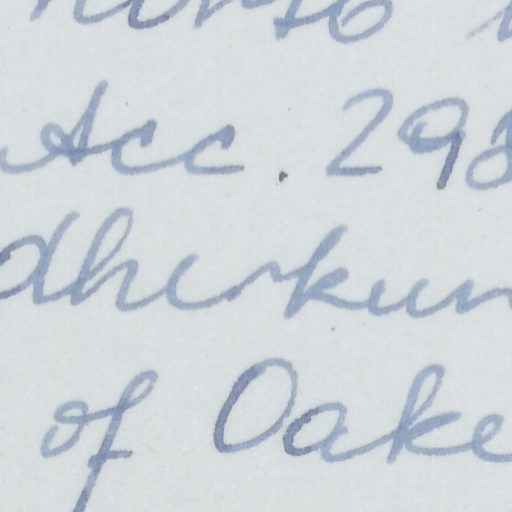 Acc. 298
dherkun
of Oake